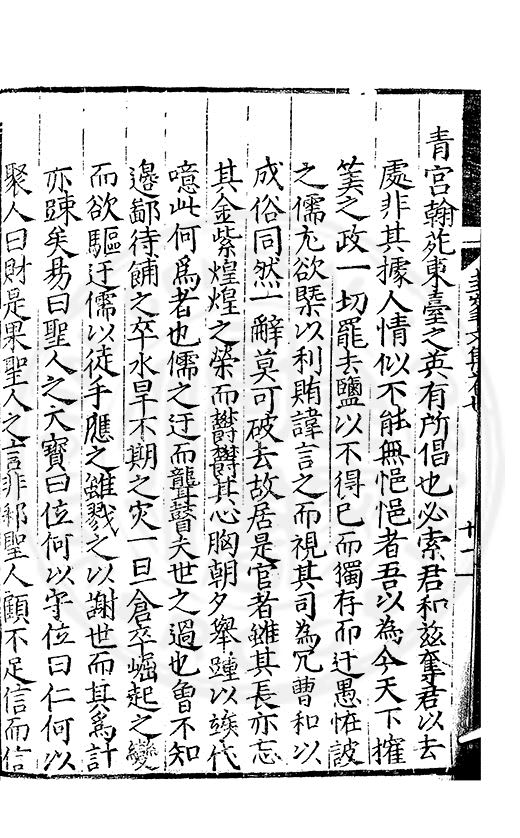 青宮翰苑東臺之英有所倡也必索君和茲奪君以去
處非其據人情似不能無悒悒者吾以為今天下搉
筭之政一切罷去鹽以不得已而獨存而迂愚恠詖
之儒尤欲槩以利賄諱言之而視其司為冗曹和以
成俗同然一辭莫可破去故居是官者雖其長亦忘
其金紫煌煌之榮而鬱鬱其心胸朝夕舉踵以竢代
噫此何為者也儒之迂而聾瞽夫世之過也曾不知
邊鄙待餔之卒水旱不期之灾一旦倉卒崛起之變
而欲驅迂儒以徒手應之雖戮之以謝世而其為計
亦踈矣易曰聖人之大寶曰位何以守位曰仁何以
聚人曰財是果聖人之言非邪聖人顧不足信而信
十一